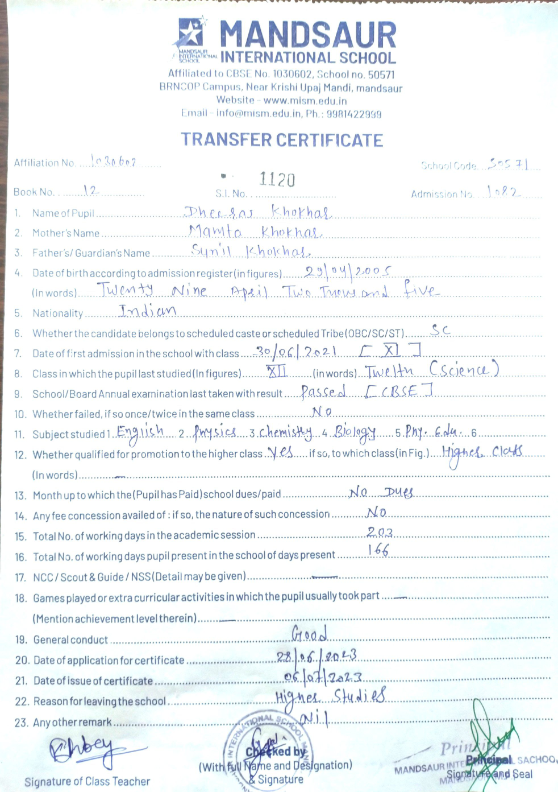 MANDSAUR
INTERNATIONAL SCHOOL
MANDSAUR INTERNATIONAL SCHOOL
Affiliated to CBSE No. 1030602, School no. 50571
BRNCOP Campus, Near Krishi Upaj Mandi, mandsaur
Website - www.mism.edu.in
Email - info@mism.edu.in, Ph.: 9981422999
TRANSFER CERTIFICATE
Affiliation No. 1030602 School Code 50571
Book No. 12 S.I. No. 1120 Admission No 1082
1. Name of Pupil Dheeraj Khokhar
2. Mother's Name Mamta Khokhar
3. Father's/ Guardian's Name Sunil Khokhar
4. Date of birth according to admission register (in figures) 29/04/2005
(In words) Twenty Nine April Two Thousand five
5. Nationality Indian
6. Whether the candidate belongs to scheduled caste or scheduled Tribe (OBC/SC/ST) SC
7. Date of first admission in the school with class 30/06/2021 [XI]
8. Class in which the pupil last studied (In figures) XII (in words) Twelth (Science)
9. School/Board Annual examination last taken with result Passed [CBSE]
10. Whether failed, if so once/twice in the same class No
11. Subject studied 1. English 2. Physics 3. Chemistry 4. Biology 5. Phy. Edu. 6.
12. Whether qualified for promotion to the higher class Yes if so, to which class (in Fig.) Higher Class
(In words) —
13. Month up to which the (Pupil has Paid) school dues/paid No Dues
14. Any fee concession availed of : if so, the nature of such concession No
15. Total No. of working days in the academic session 203
16. Total No. of working days pupil present in the school of days present 166
17. NCC / Scout & Guide / NSS (Detail may be given) —
18. Games played or extra curricular activities in which the pupil usually took part —
(Mention achievement level therein) —
19. General conduct Good
20. Date of application for certificate 28/06/2023
21. Date of issue of certificate 06/07/2023
22. Reason for leaving the school Higher Studies
23. Any other remark Nil
Checked by Principal
(With full Name and Designation) Principal
Signature of Class Teacher & Signature Signature and Seal